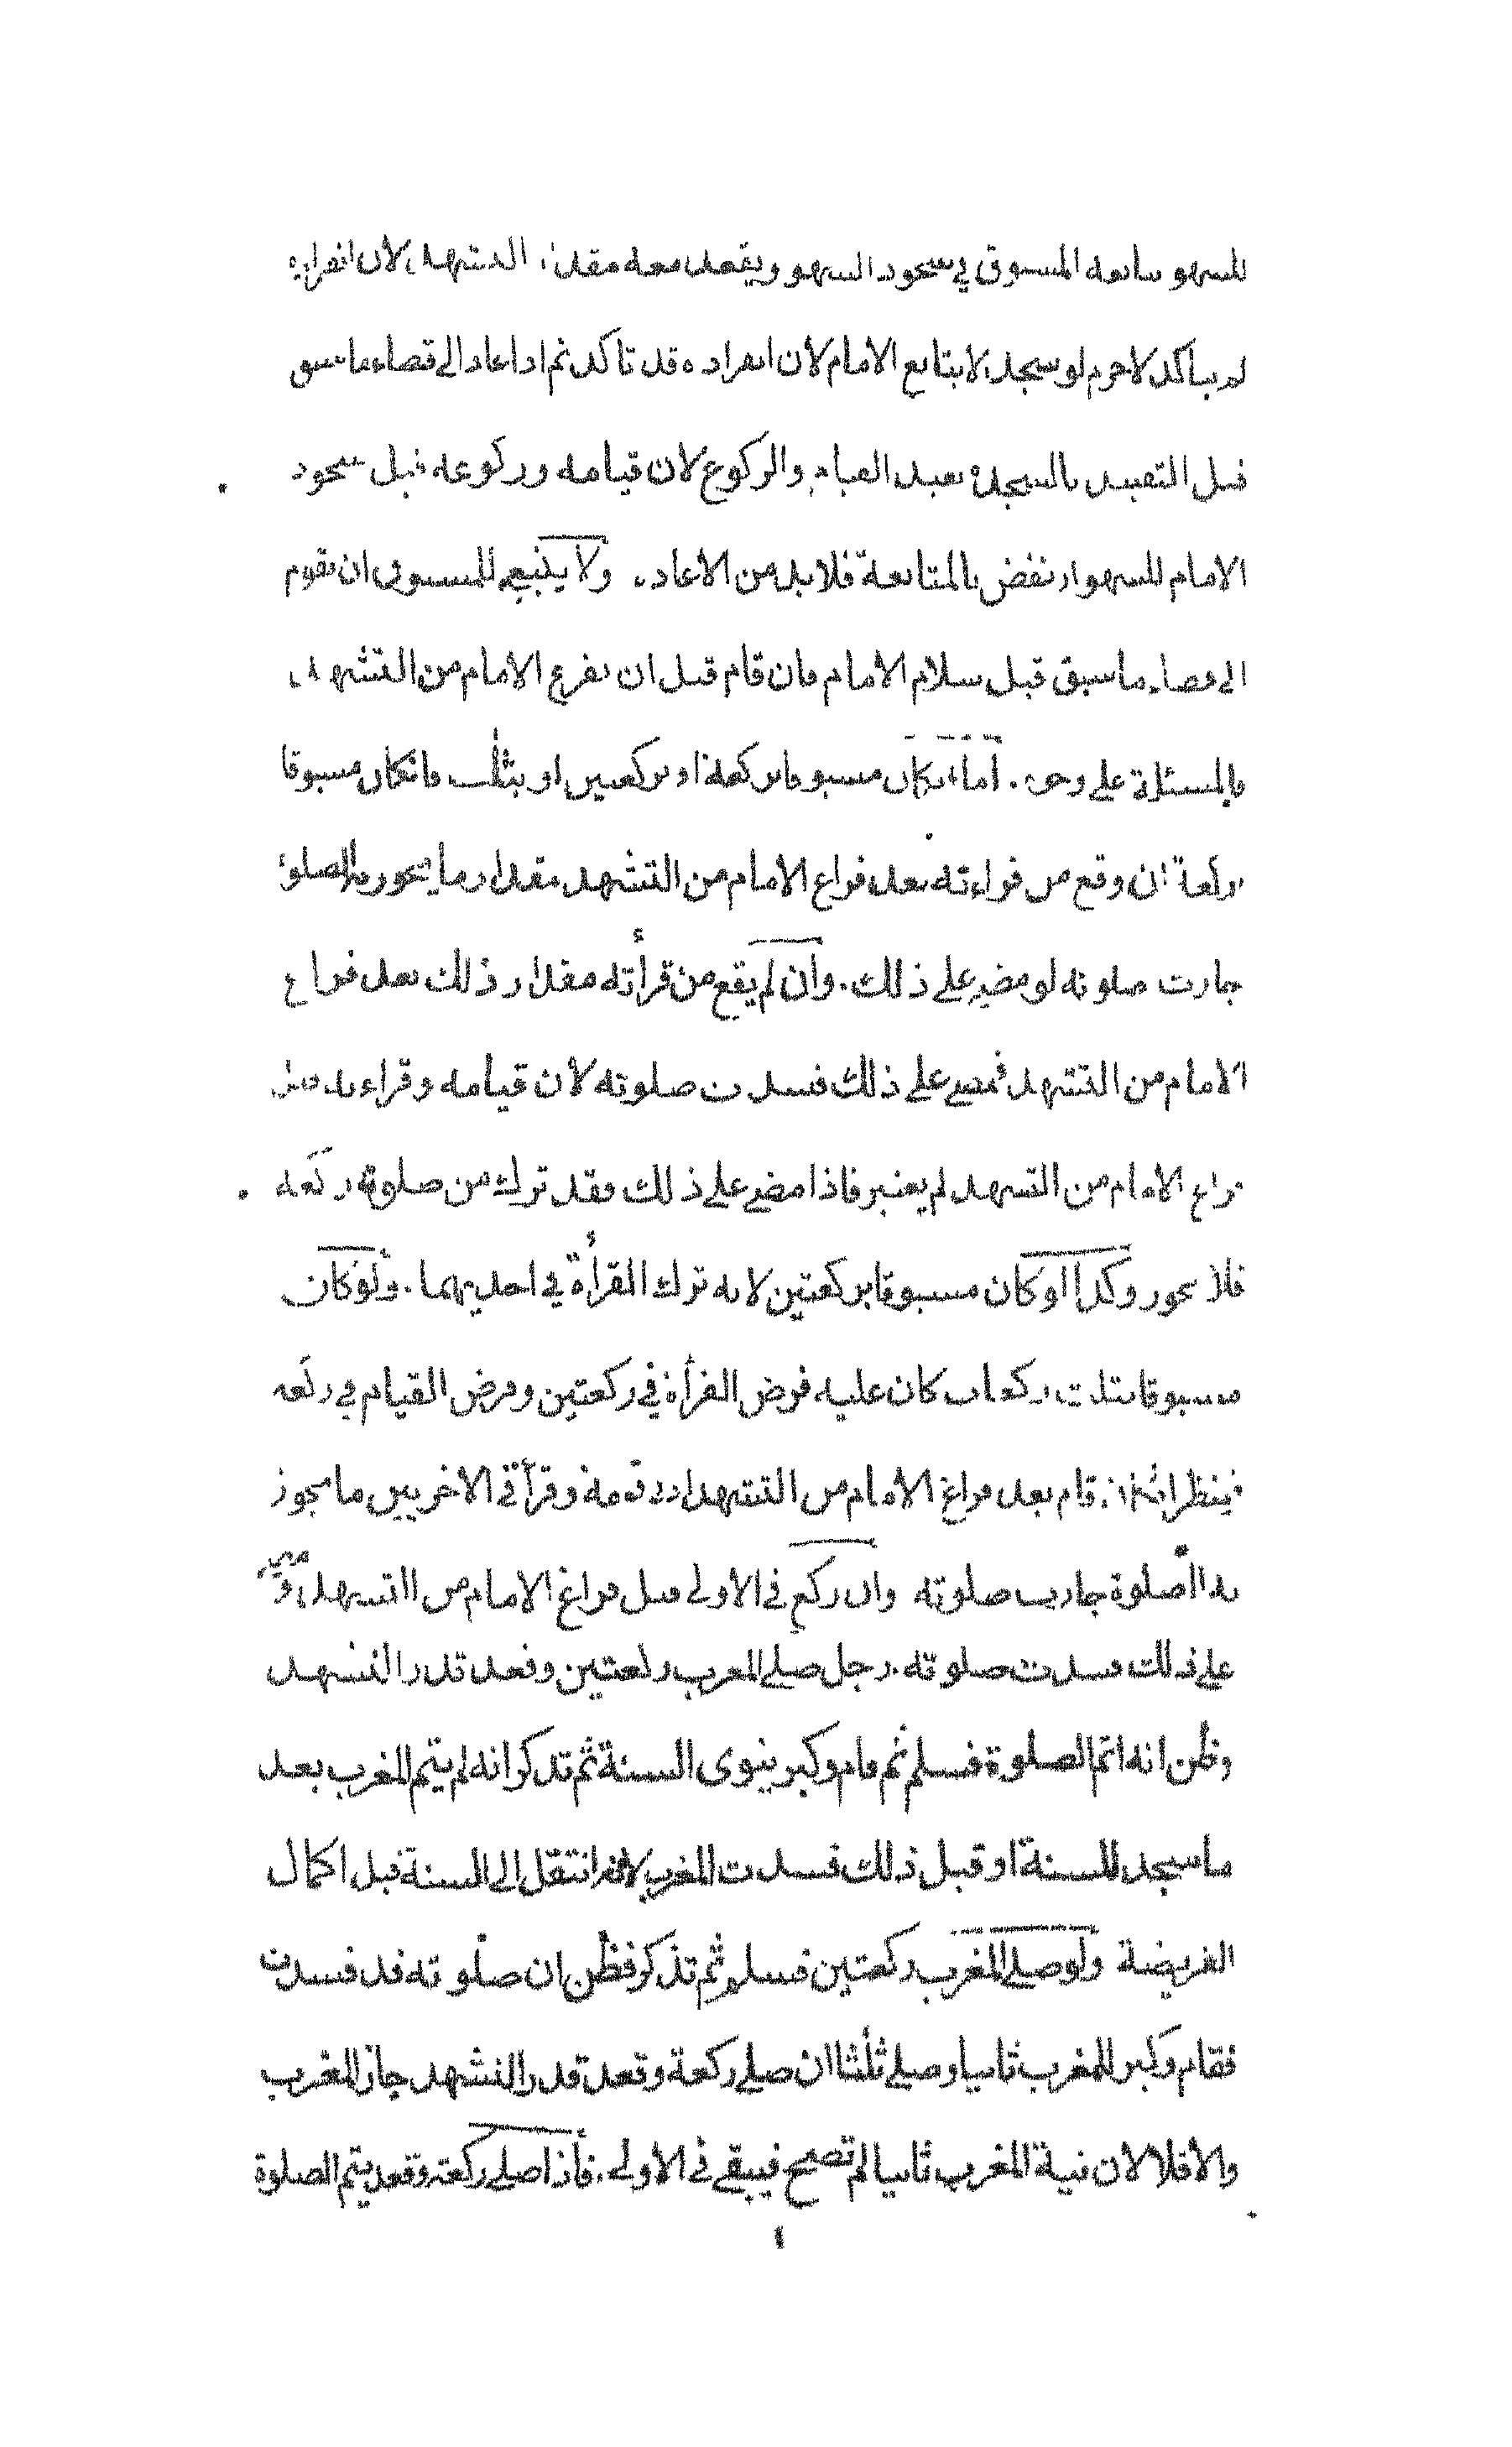 للسهو يتابعه المسبوق في سجود السهو ويقعد معه مقدار التشهد لان انفراده
لم يتأكد لاجرم لو سجد لايتابع الامام لان انفراده قد تاكد ثم اذا عاد الى قضاء ما سبق
قبل التقييد بالسجدة يعيد القيام والركوع لان قيامه وركوعه قبل سجود
الامام للسهو ارتفض بالمتابعة فلابد من الاعادة ولا ينبغي للمسبوق ان يقوم
الى قضاء ما سبق قبل سلام الامام فان قام قبل ان يفرغ الامام من التشهد
فالمسئلة على وجوه . اما ان كان مسبوقا بركعة او بركعتين او بثلث فان كان مسبوقا
بركعة ان وقع من قراءته بعد فراغ الامام من التشهد مقدار ما يجوز به الصلوة
جازت صلوته لو مضى على ذلك . وان لم يقع من قرأته مقدار ذلك بعد فراغ
الامام من التشهد فمضى على ذلك فسدت صلوته لان قيامه وقراءته قبل
فراغ الامام من التشهد لم يعتبر فاذا مضى على ذلك فقد ترك من صلوته ركعة
فلا يجوز وكذا لو كان مسبوقا بركعتين لانه ترك القرأة في احديهما . ولو كان
مسبوقا بثلث ركعات كان عليه فرض القرأة في ركعتين وفرض القيام في ركعة
فينظر ان كان قام بعد فراغ الامام من التشهد ادنى قومة وقرأ في الاخريين ما يجوز
به الصلوة جازت صلوته وان ركع في الاولى قبل فراغ الامام من التشهد ومضى
على ذلك فسدت صلوته . رجل صلى المغرب ركعتين وقعد قدر التشهد
وظن انه اتم الصلوة فسلم ثم قام وكبر ينوى السنة ثم تذكر انه لم يتم المغرب بعد
ما سجد للسنة او قبل ذلك فسدت المغرب لانه انتقل الى السنة قبل اكمال
الفريضة ولو صلى المغرب ركعتين فسلم ثم تذكر فظن ان صلوته قد فسدت
فقام وكبر للمغرب ثانيا وصلى ثلثا ان صلى ركعة وقعد قدر التشهد جاز المغرب
والا فلا لان نية المغرب ثانيا لم تصح فيبقى في الاولى . فاذا صلى ركعة وقعد يتم الصلوة
١